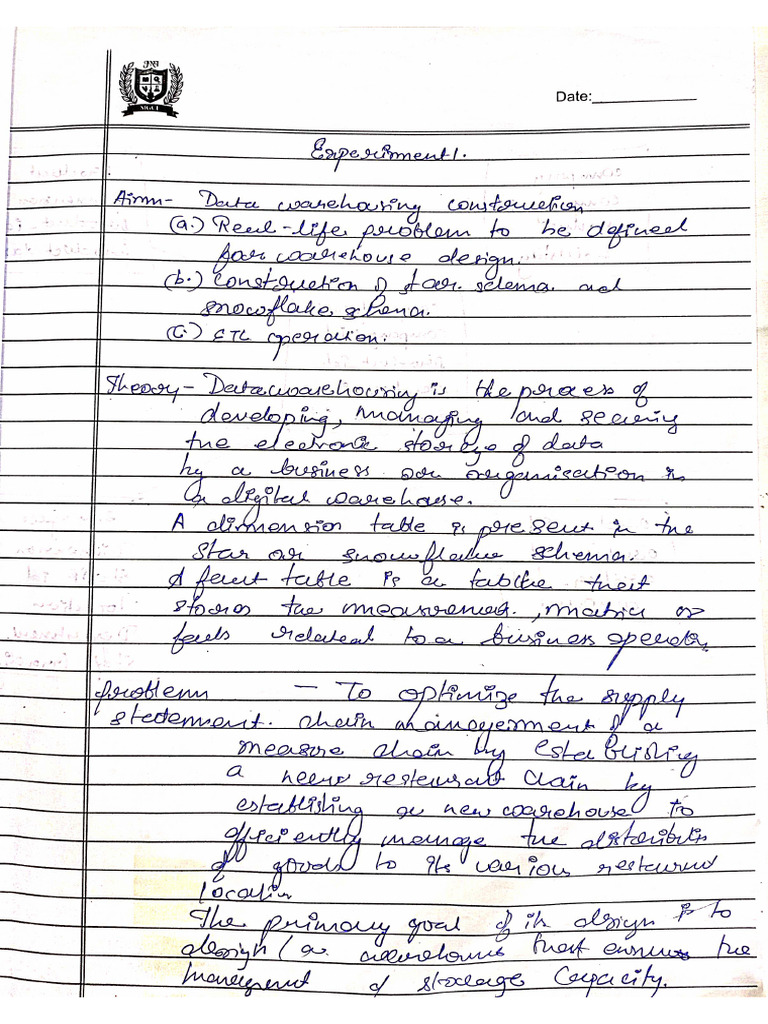 Date:
Experiment 1.
Aim - Data warehousing construction
(a.) Real-life problem to be defined
for warehouse design.
(b.) Construction of star schema and
snowflake schema.
(c.) ETL operation.
Theory - Data warehousing is the process of
developing, managing and securing
the electronic storage of data
by a business or organisation in
a digital warehouse.
A dimension table is present in the
star or snowflake schema.
A fact table is a table that
stores the measurement, or
facts related to a business
Problem - To optimize the supply
statement. chain management of a
measure chain by establishing
a restaurant chain by
establishing a new warehouse to
efficiently manage the distribution
of goods to its various restaurant
location
The primary goal of its design is to
design a that ensures the
management of storage capacity.